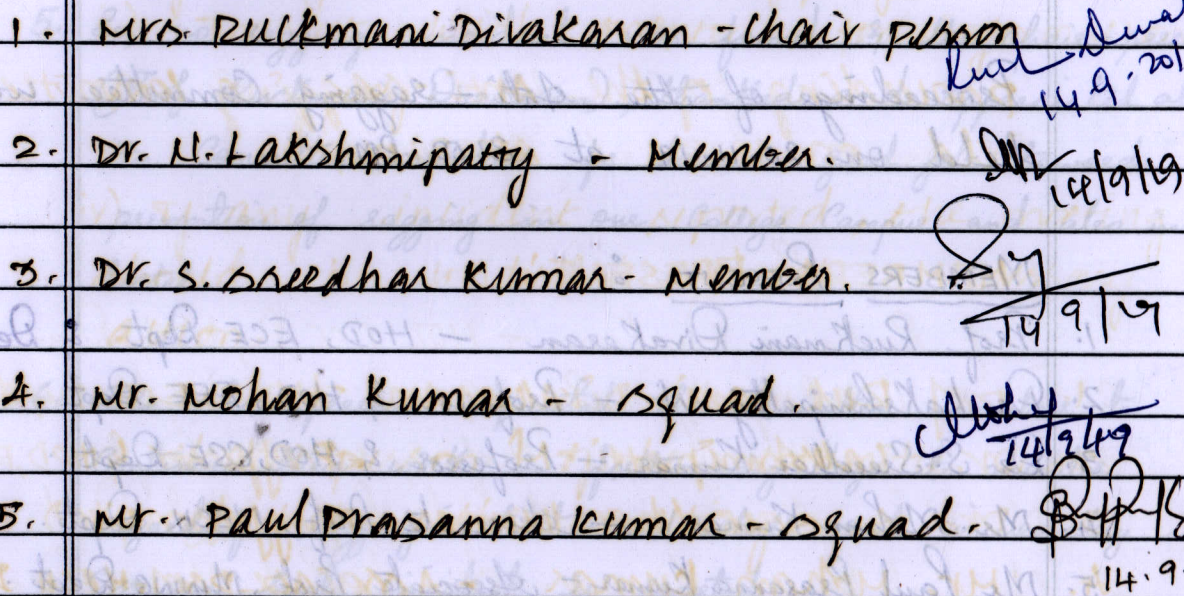 1. Mrs. Ruckmani Divakaran - Chair person
14.9.201
2. Dr. N. Lakshmipatty - Member.
14/9/19
3. Dr. S. Sreedhar Kumar - Member.
14/9/19
4. Mr. Mohan Kumar - Squad.
14/9/19
5. Mr. Paul Prasanna Kumar - Squad.
14.9